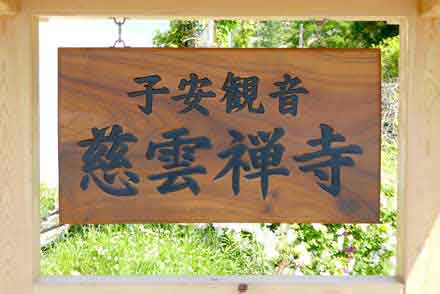 子安観音
慈雲禅寺